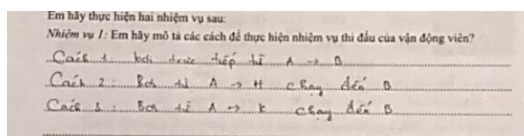 Em hãy thực hiện hai nhiệm vụ sau:
Nhiệm vụ 1: Em hãy mô tả các cách để thực hiện nhiệm vụ thi đấu của vận động viên?
Cách 1 bơi trực tiếp từ A → B
Cách 2: Bơi từ A → H chạy đến B
Cách 3: Bơi từ A → K chạy đến B